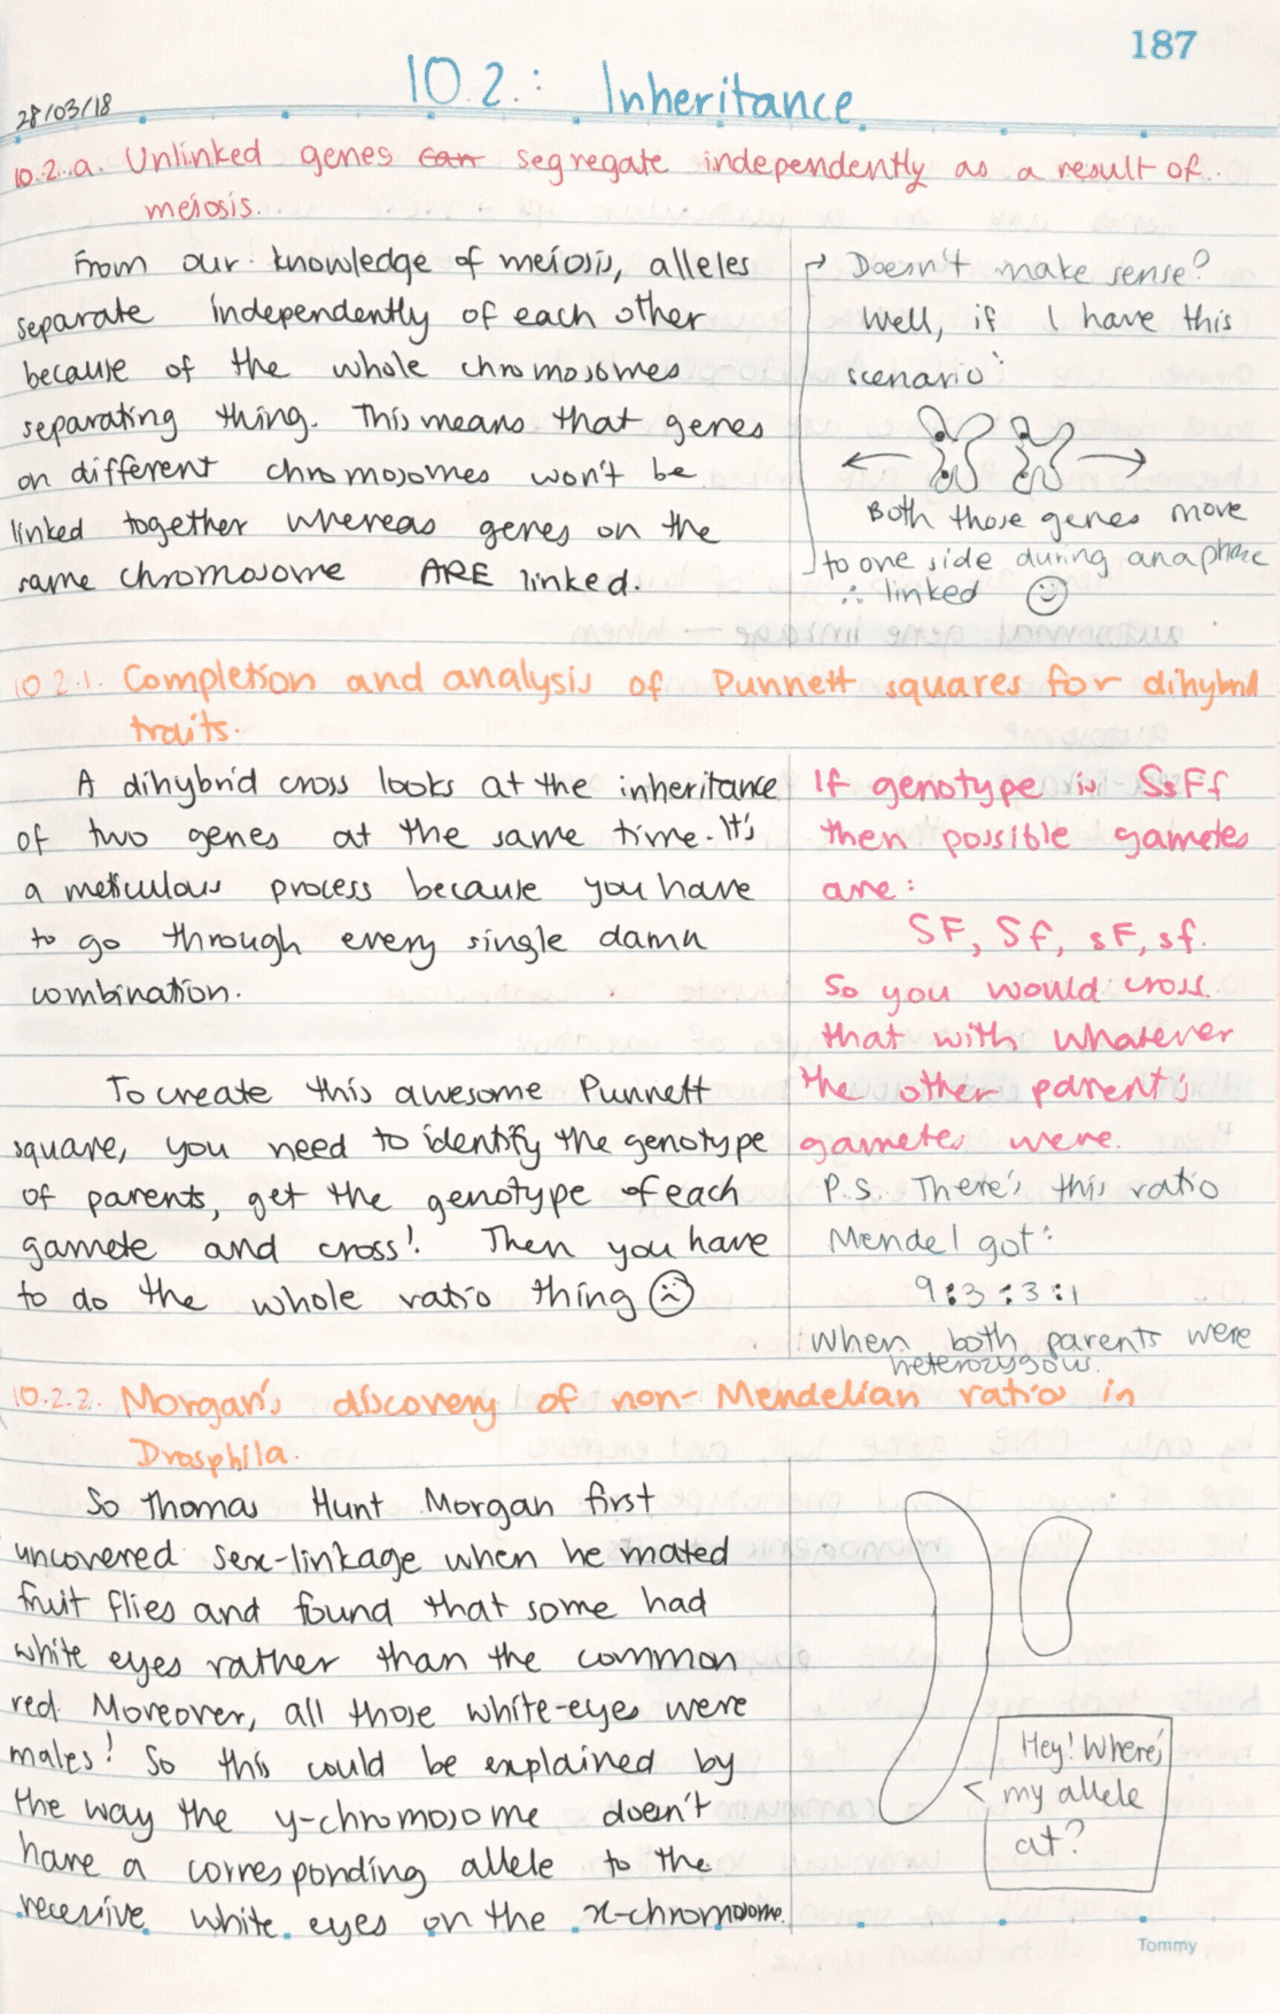 187
10.2.: Inheritance
28/03/18
10.2.a. Unlinked genes can segregate independently as a result of
meiosis.
From our knowledge of meiosis, alleles
separate independently of each other
because of the whole chromosomes
separating thing. This means that genes
on different chromosomes won't be
linked together whereas genes on the
same chromosome ARE linked.
Doesn't make sense?
Well, if I have this
scenario:
Both those genes move
to one side during anaphase
∴ linked
10.2.1. Completion and analysis of Punnett squares for dihybrid
traits.
A dihybrid cross looks at the inheritance
of two genes at the same time. It's
a meticulous process because you have
to go through every single damn
combination.
To create this awesome Punnett
square, you need to identify the genotype
of parents, get the genotype of each
gamete and cross! Then you have
to do the whole ratio thing
If genotype is SsFf
then possible gametes
are:
SF, Sf, sF, sf.
So you would cross
that with whatever
the other parent's
gametes were.
P.S. There's this ratio
Mendel got:
9:3:3:1
When both parents were
heterozygous.
10.2.2. Morgan's discovery of non-Mendelian ratios in
Drosphila.
So Thomas Hunt Morgan first
uncovered sex-linkage when he mated
fruit flies and found that some had
white eyes rather than the common
red. Moreover, all those white-eyes were
males! So this could be explained by
the way the y-chromosome doesn't
have a corresponding allele to the
recessive white eyes on the x-chromosome.
Hey! Where's
my allele
at?
Tommy